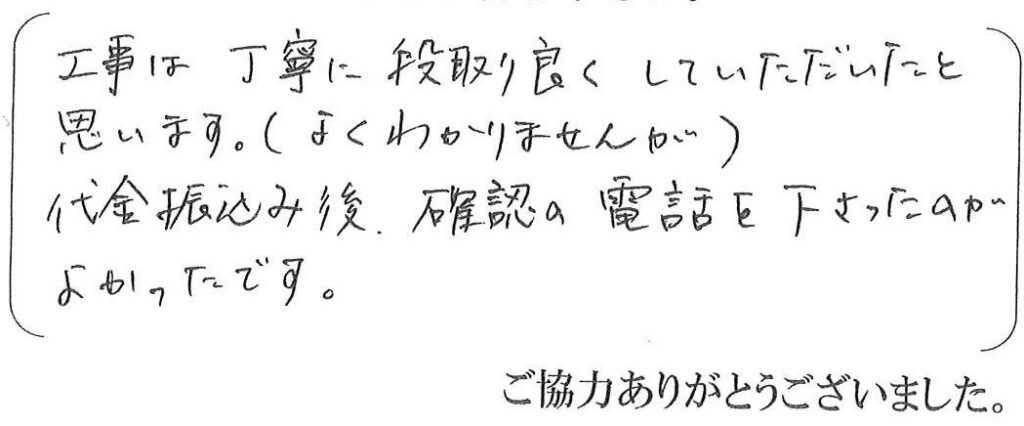 工事は 丁寧に 段取り良く していただいたと
思います。(よくわかりませんが)
代金振込み後、確認の 電話を 下さったのが
よかったです。
ご協力ありがとうございました。